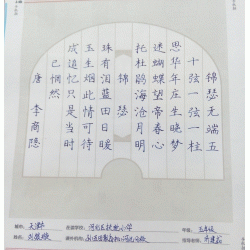 锦瑟无端五
十弦一弦一柱
思华年庄生晓梦
迷蝴蝶望帝春心
托杜鹃海沧月明
锦瑟
珠有泪蓝田日暖
玉生烟此情可待
成追忆只是当时
已惘然
唐 李商隐
天津市 在读学校: 河北区扶轮小学 年级: 五年级
姓名: 课外机构: 指导老师: